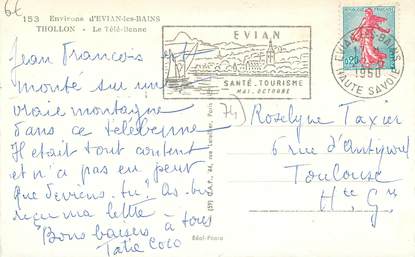 6€
153 Environs d'EVIAN-les-BAINS
THOLLON - Le Télé-Benne
EVIAN
SANTÉ. TOURISME
MAI. OCTOBRE
EVIAN-LES-BAINS
1960
HAUTE SAVOIE
0,20
Jean François
monté sur un
vraie montagne
dans ce télébenne
Il était tout content
et n'a pas eu peur
Que deviens-tu? As-tu
reçu ma lettre
Bons baisers à tous
Tatie Coco
74
Roselyne Taxier
6 rue
Toulouse
Hte G
Réal-Photo